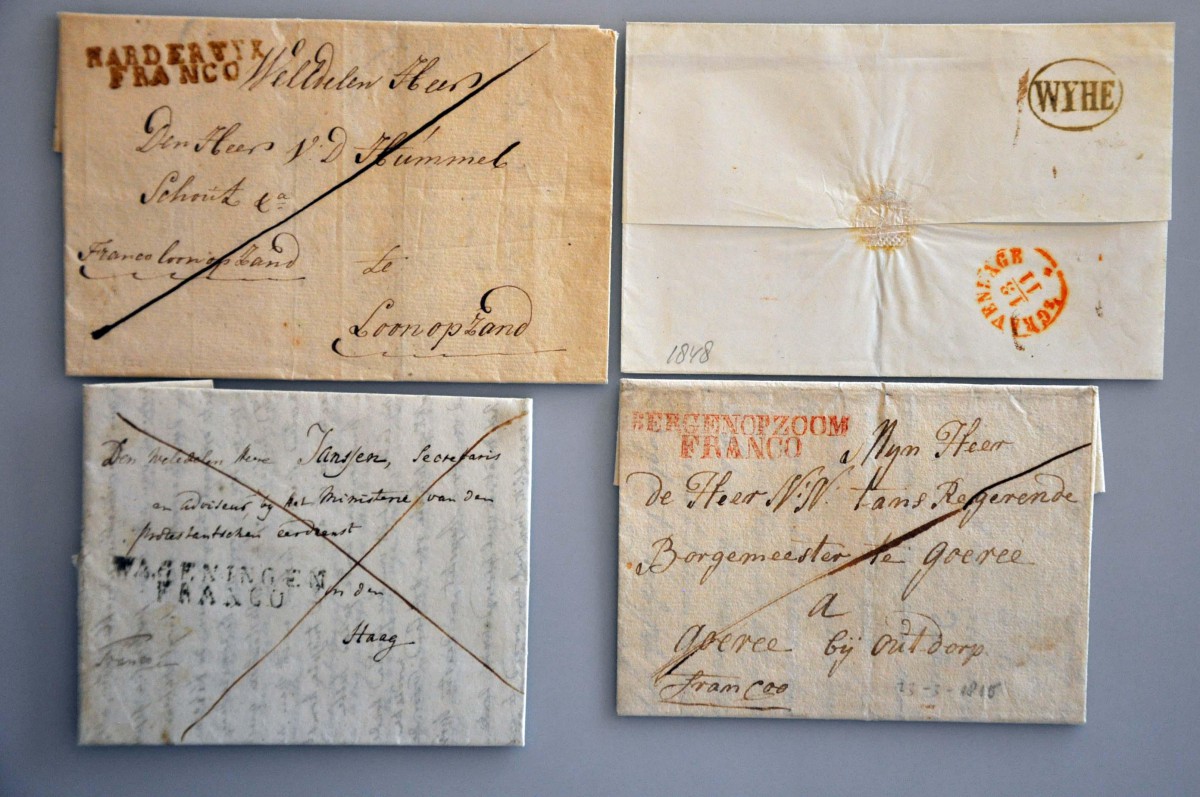 HARDERWYK
FRANCO
Weledelen Heer
Den Heer V:D Hummel
Schout &a
Franco loon op Zand
te
Loon op Zand
WYHE
'SGRAVENHAGE
13
11
1848
Den weledelen Heere Janssen, Secretaris
en adviseur by het Ministerie van den
protestantschen eerdienst
WAGENINGEN
FRANCO
in den
Haag
Franco
BERGENOPZOOM
FRANCO
Myn Heer
de Heer N:N. tans Regerende
Borgemeester te goeree
a
goeree bij outdorp
francoo
23-3-1815